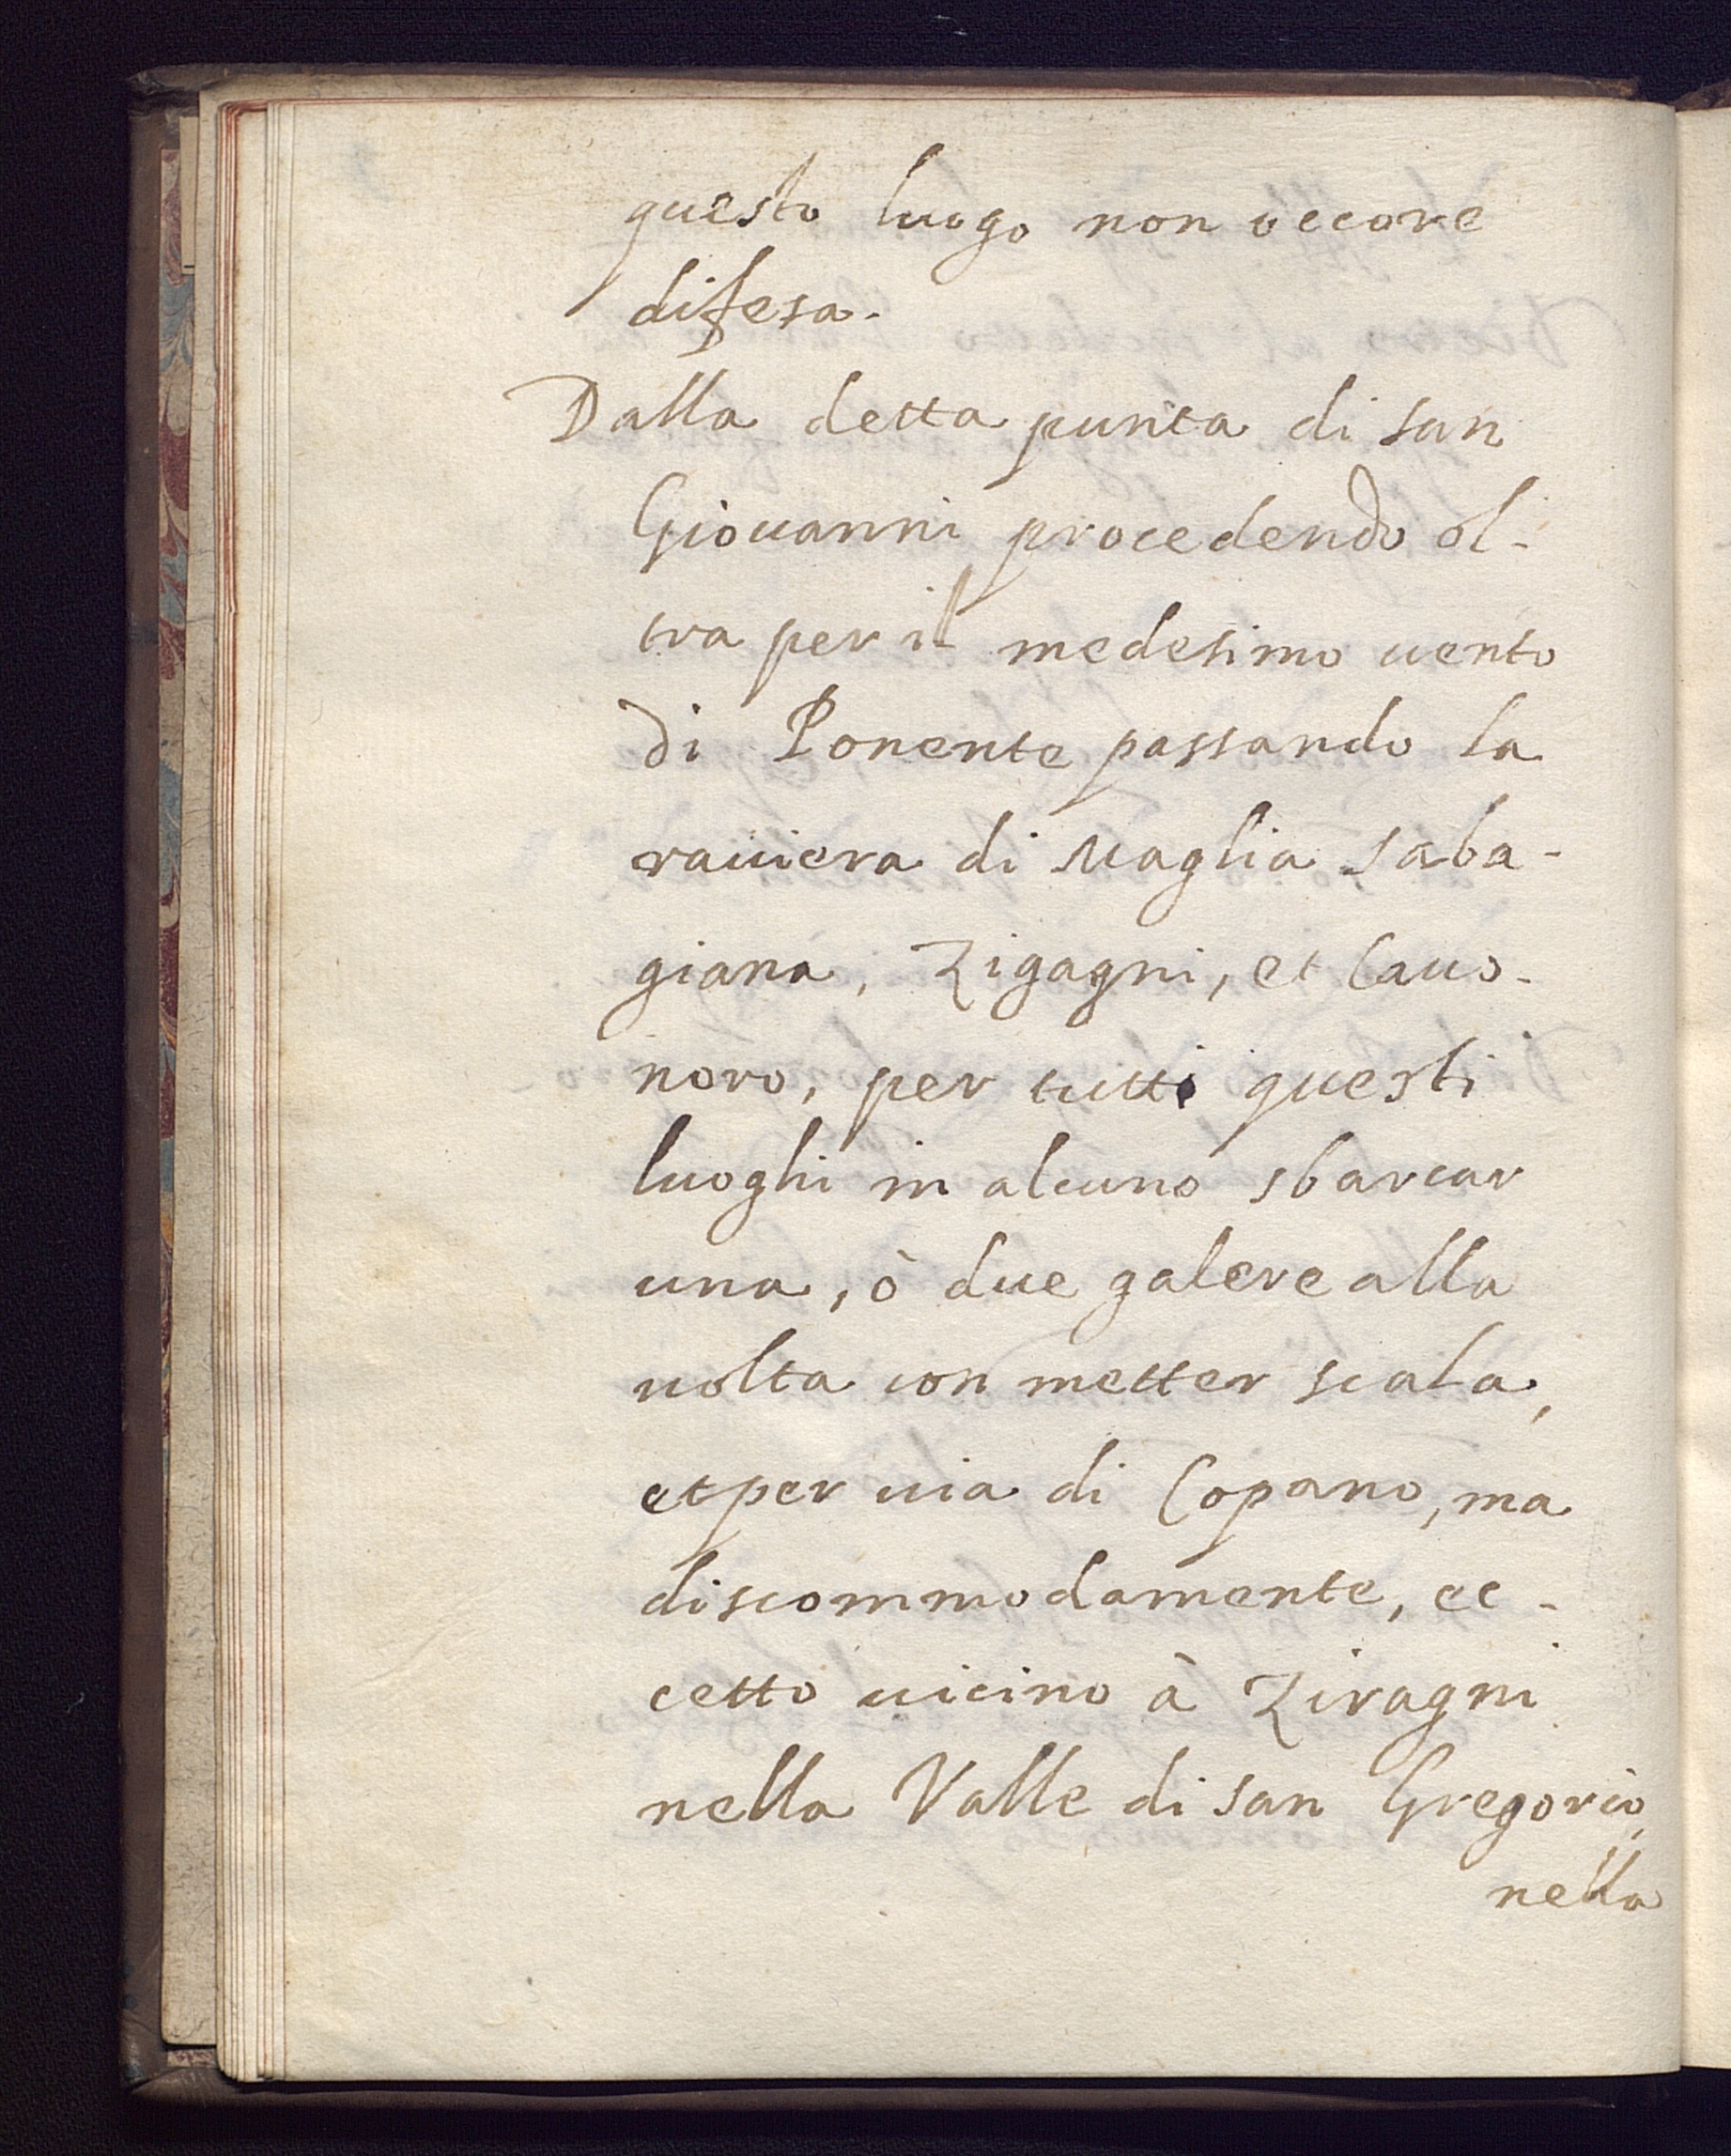 questo luogo non occore
difesa.
Dalla detta punta di san
Giouanni procedendo ol-
tra per il medesimo uento
di Ponente passando la
rauiera di Maglia saba-
giana, Zigagni, et Cauo-
noro, per tutti questi
luoghi in alcuno sbarcar
una, ò due galere alla
uolta con metter scala,
et per uia di Copano, ma
discommodamente, ec-
cetto uicino à Ziragni
nella Valle di san Gregorio,
nella